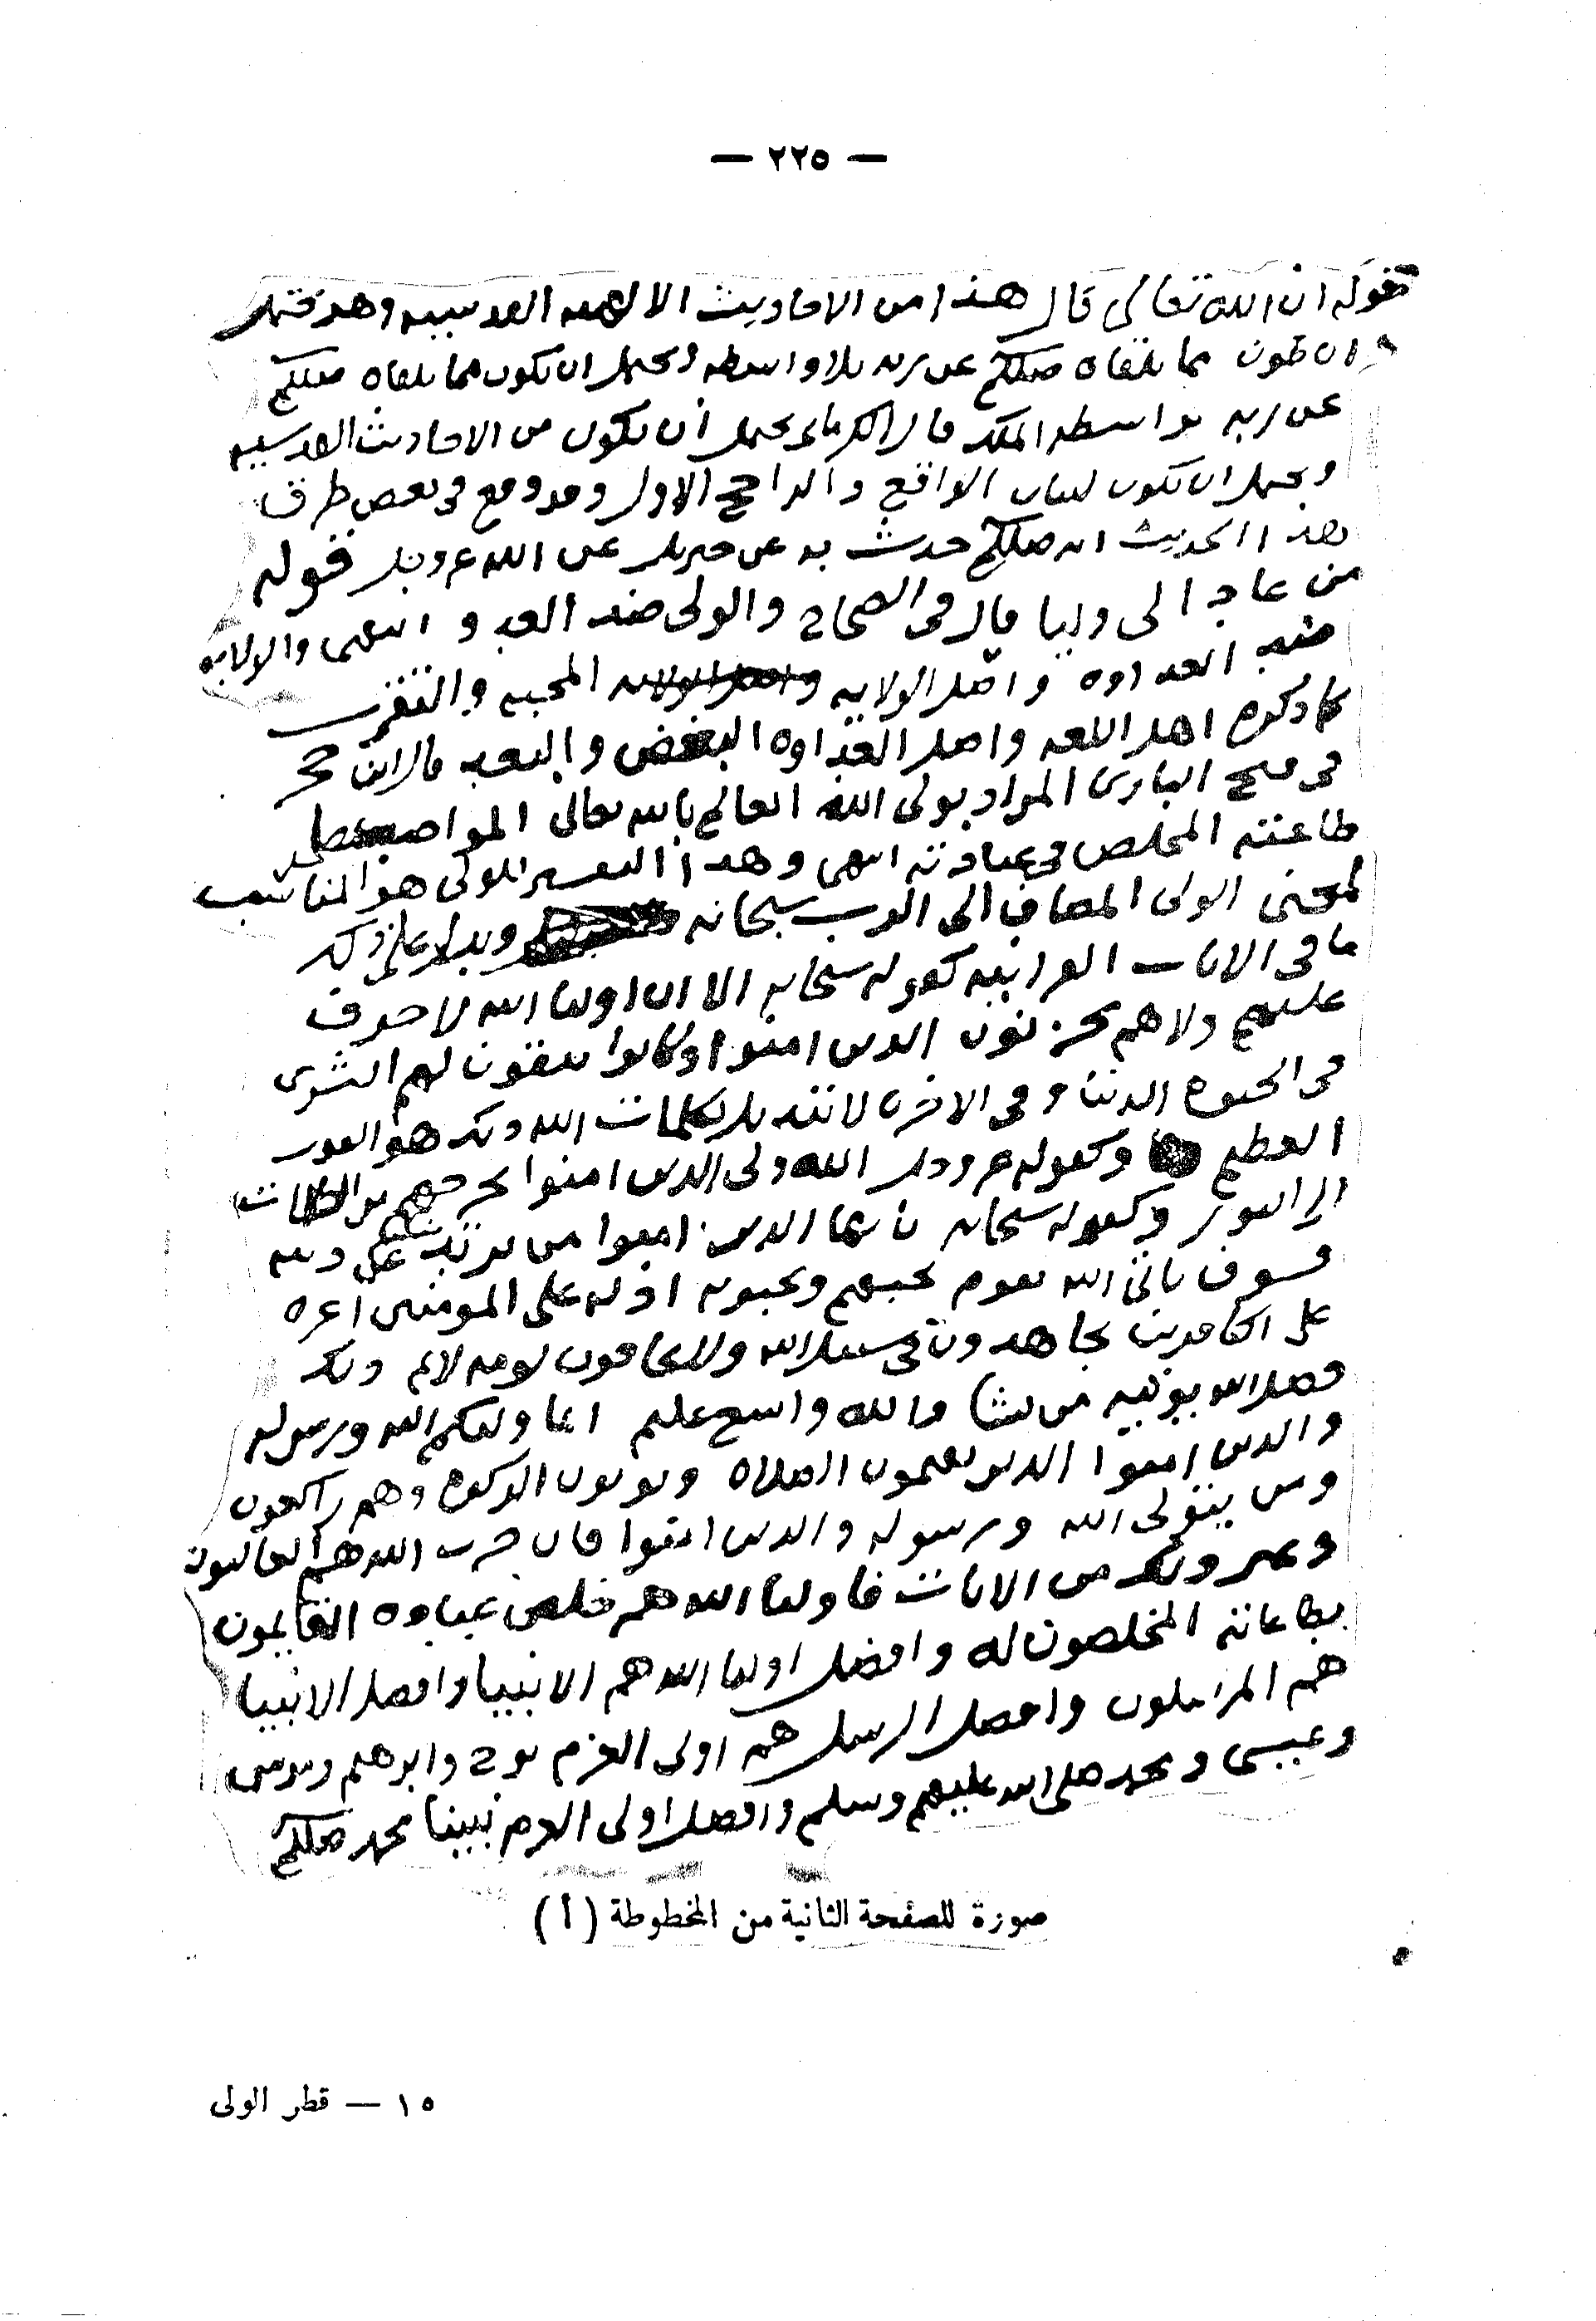 — ٢٢٥ —
قوله ان الله تعالى قال هذا من الاحاديث الالهيه القدسيه وهو يحتمل
ان يكون مما تلقاه صللم عن ربه بلا واسطه ويحتمل ان يكون مما تلقاه صللم
عن ربه بواسطه الملك قال الكرماني يحتمل ان يكون من الاحاديث القدسيه
ويحتمل ان يكون لبيان الواقع والراجح الاول وقد وقع في بعض طرق
هذا الحديث انه صللم حدث به عن جبريل عن الله عز وجل قوله
من عادا لى وليا قال في الصحاح والولى ضد العدو انتهى والولايه
ضد العداوه واصل الولايه المحبه والتقرب
كما ذكره اهل اللغه واصل العداوه البغض والبعد قال ابن حجر
في فتح البارى المراد بولى الله العالم بالله تعالى المواضب على
طاعته المخلص في عبادته انتهى وهذا التفسير للولى هو المناسب
لمعنى الولى المضاف الى الرب سبحانه ويدل على ذلك
ما في الايات القرانيه كقوله سبحانه الا ان اوليا الله لا خوف
عليهم ولا هم يحزنون الدين امنوا وكانوا يتقون لهم البشرى
في الحيوه الدنيا وفي الاخره لا تبديل لكلمات الله ذلك هو الفوز
العظيم وكقوله عز وجل الله ولى الدين امنوا يخرجهم من الظلمات
الى النور وكقوله سبحانه يا يها الدين امنوا من يرتد منكم عن دينه
فسوف ياتي الله بقوم يحبهم ويحبونه اذله على المومنين اعزه
على الكافرين يجاهدون في سبيل الله ولا يخافون لومه لائم ذلك
فضل الله يوتيه من يشا والله واسع عليم انما وليكم الله ورسوله
والدين امنوا الدين يقيمون الصلاه ويوتون الزكوه وهم راكعون
ومن يتولى الله ورسوله والدين امنوا فان حزب الله هم الغالبون
وغير ذلك من الايات فاوليا الله هم خلص عباده القايمون
بطاعاته المخلصون له وافضل اوليا الله هم الانبيا وافضل الانبيا
هم المرسلون وافضل الرسل هم اولى العزم نوح وابرهيم وموسى
وعيسى ومحمد صلى الله عليهم وسلم وافضل اولى العزم نبينا محمد صللم
صورة للصفحة الثانية من المخطوطة (أ)
١٥ — قطر الولى